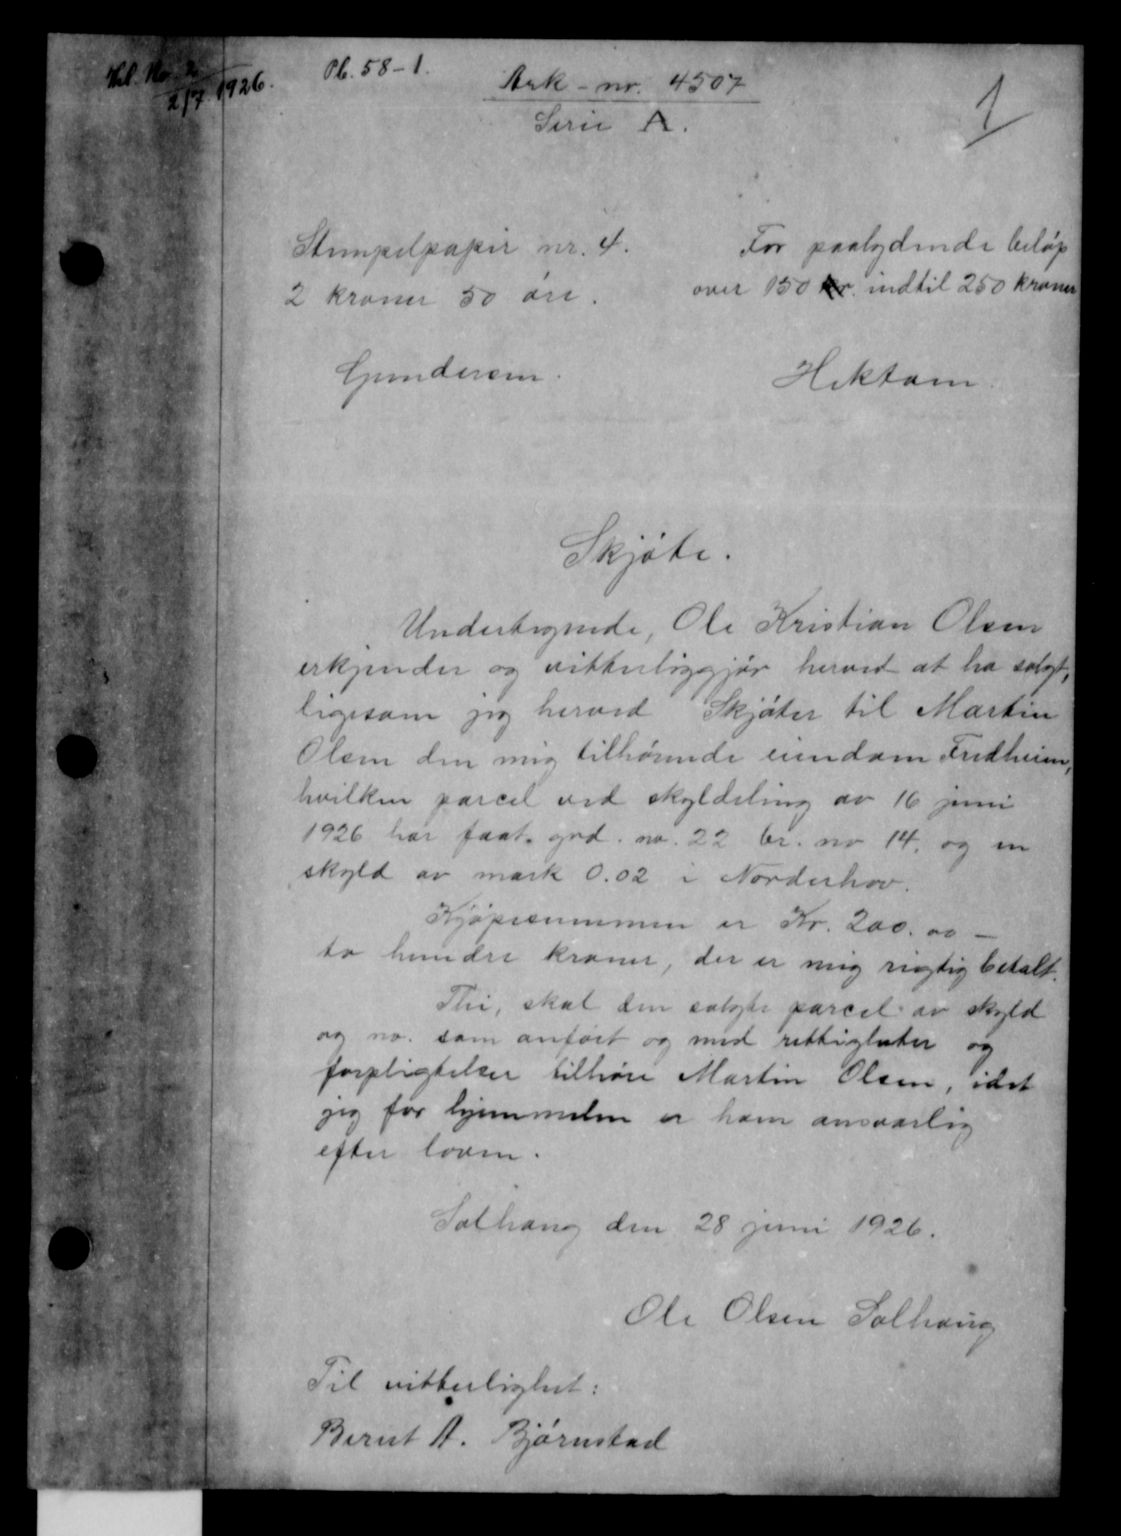 Pb. 58-1.
2/7 1926.
Ark-nr. 4507
Serie A.
1
Stempelpapir nr. 4.
2 kroner 50 øre.
For paalydende beløp
over 150 kr. indtil 250 kroner
Gundersen.
Hektoen.
Skjøte.
Undertegnede, Ole Kristian Olsen
erkjender og vitterliggjør herved at ha solgt,
ligesom jeg herved Skjøter til Martin
Olsen den mig tilhørende eiendom Fredheim,
hvilken parcel ved skylddeling av 16 juni
1926 har faat grd. no. 22 br. no 14. og en
skyld av mark 0.02 i Norderhov.
Kjøpesummen er Kr. 200.00 -
to hundre kroner, der er mig rigtig betalt.
Thi, skal den solgte parcel av skyld
og no. som anført og med rettigheter og
forpligtelser tilhøre Martin Olsen, idet
jeg for hjemmelen er ham ansvarlig
efter loven.
Solhaug den 28 juni 1926.
Ole Olsen Solhaug
Til vitterlighet:
Bernt A. Bjørnstad